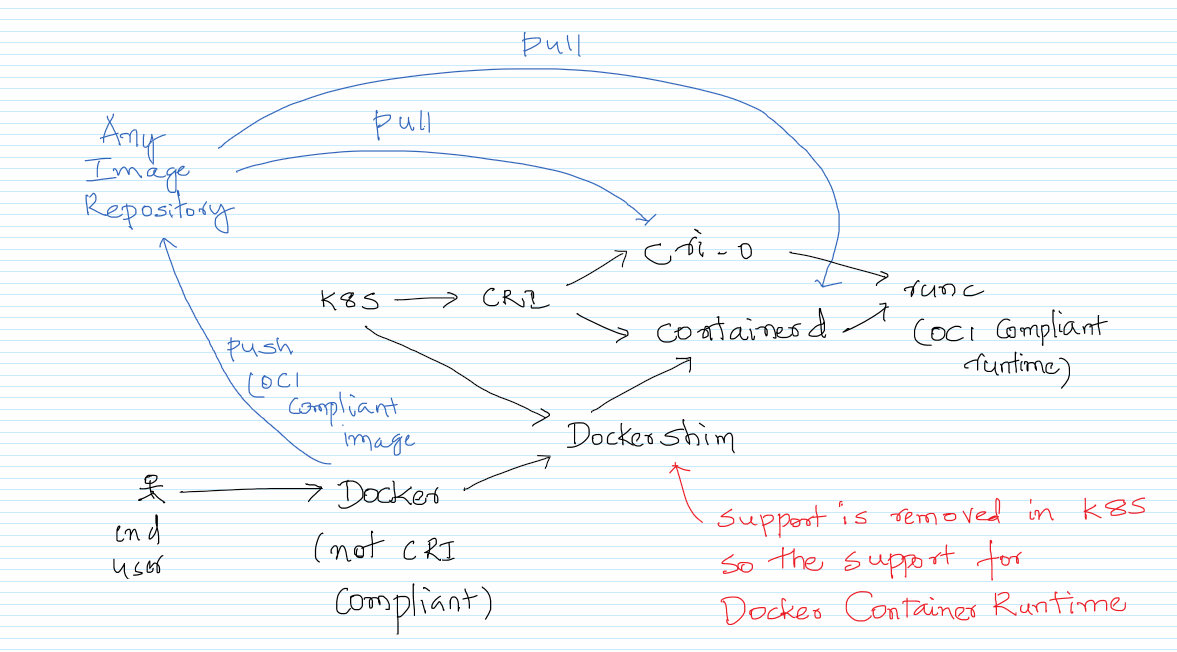 pull
pull
Any
Image
Repository
Cri-o
K8S
CRI
runc
(OCI Compliant
runtime)
containerd
push
(OCI
Compliant
image
Dockershim
end
user
Docker
(not CRI
Compliant)
support is removed in K8S
so the support for
Docker Container Runtime